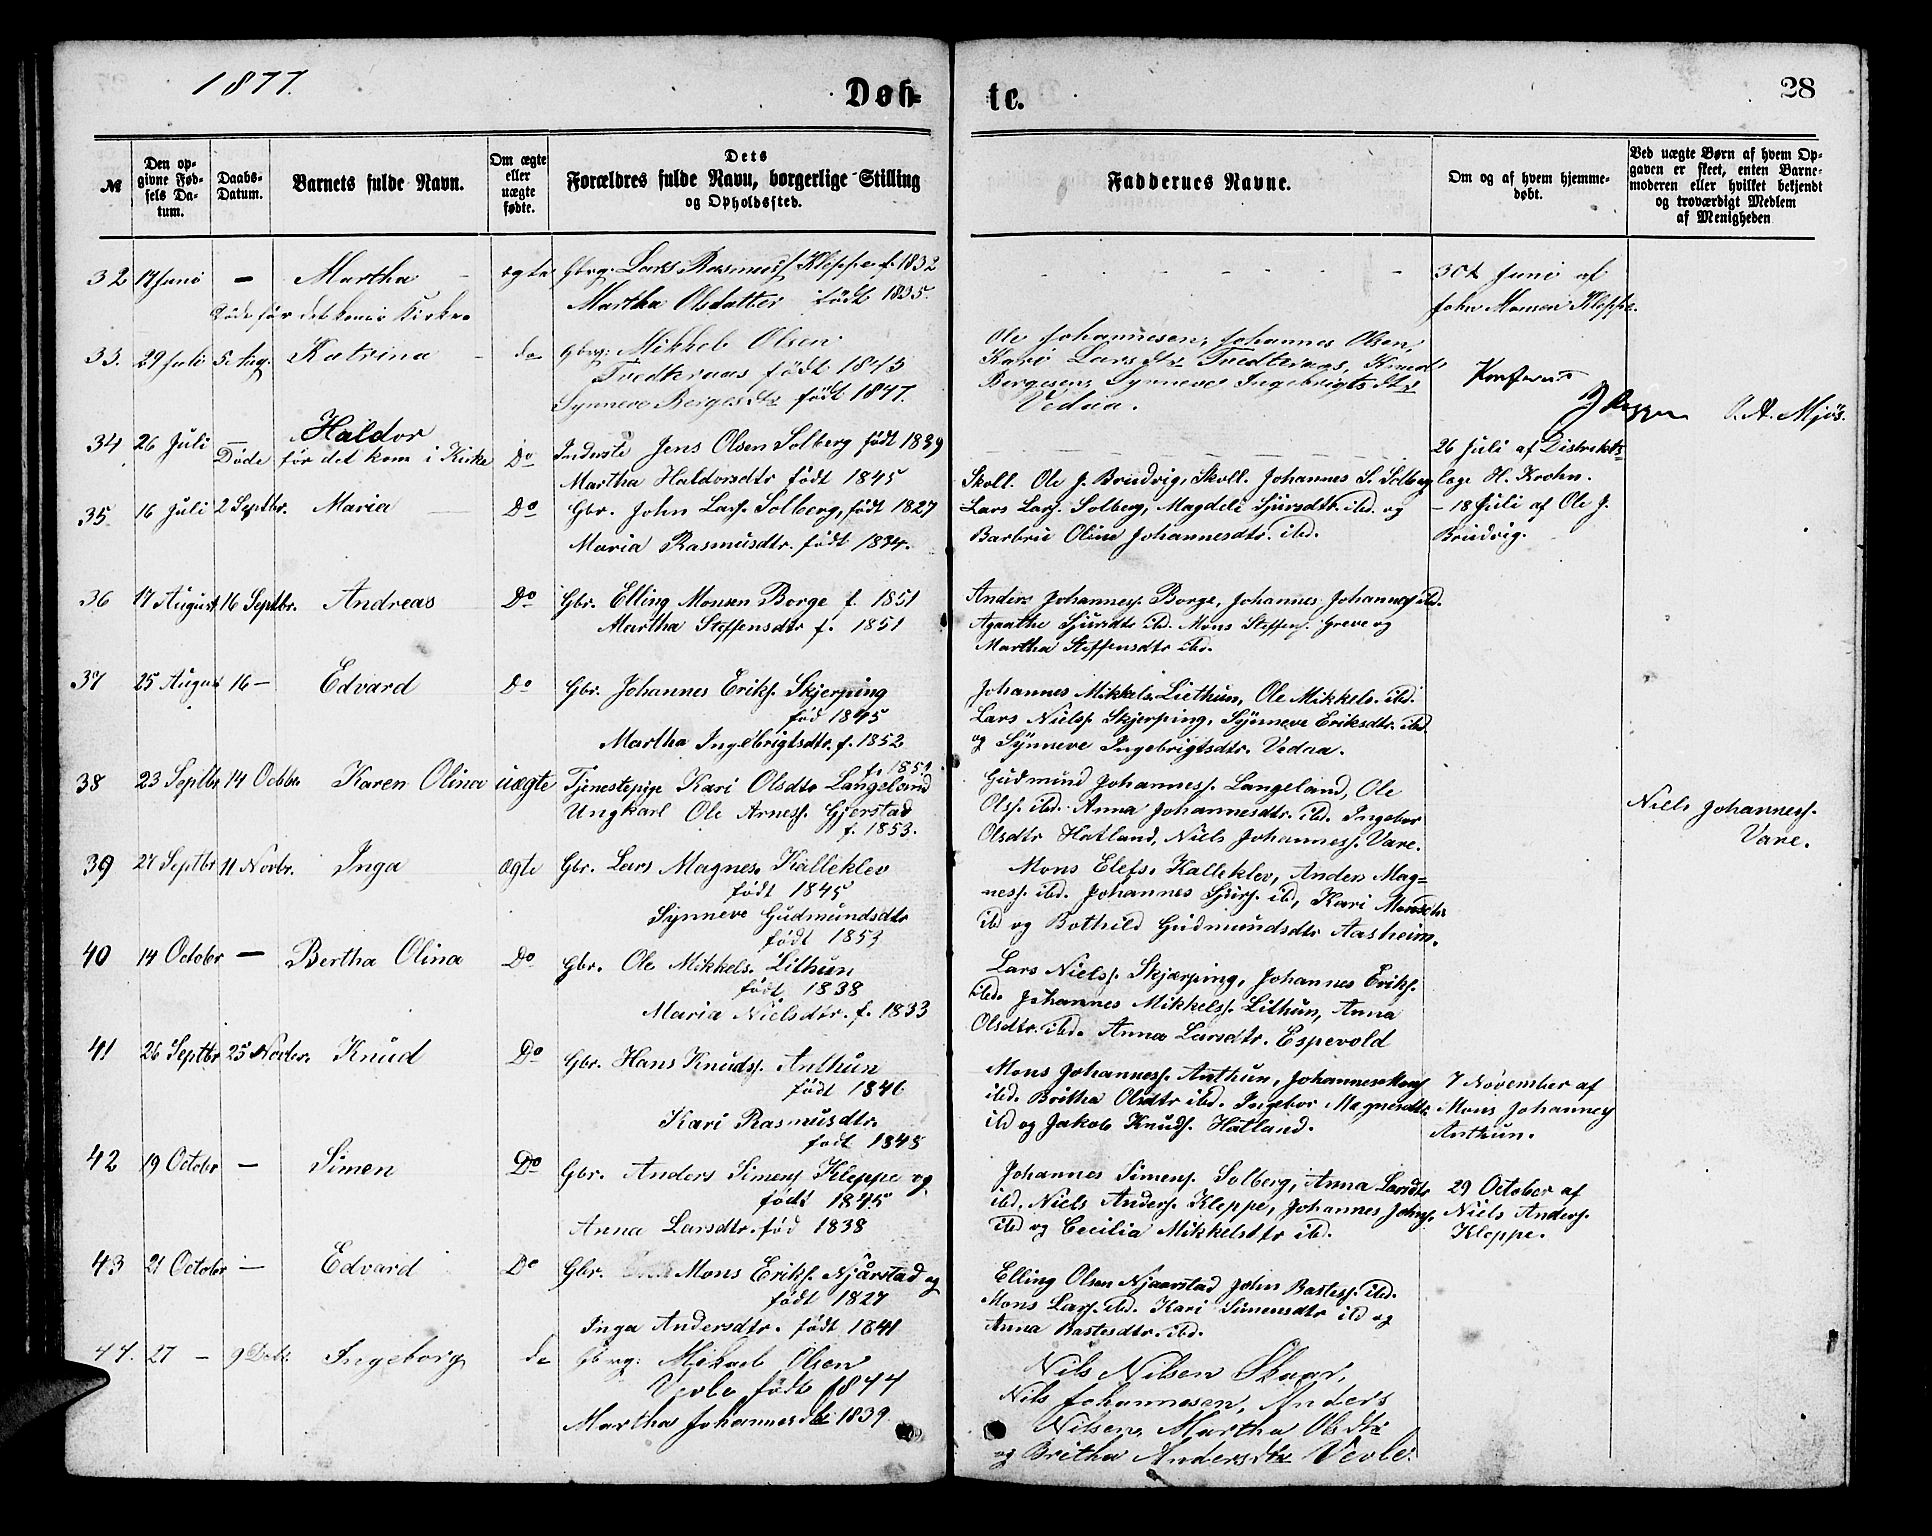 1877.
Døb-
te.
28
№
Den op-
givne Fød-
sels Da-
tum.
Daabs-
Datum.
Barnets fulde Navn.
Om ægte
eller
uægte
fødte.
Dets
Forældres fulde Navn, borgerlige Stilling
og Opholdssted.
Faddernes Navne.
Om og af hvem hjemme-
døbt.
Ved uægte Børn af hvem Op-
gaven er skeet, enten Barne-
moderen eller hvilket bekjendt
og troværdigt Medlem
af Menigheden
32 17 Juni – Martha – ægte Gbrg. Lars Rasmuss. Kleppe f. 1832
Døde før det kom i Kirke
Martha Olsdatter født 1835.
30t Juni af
John Monsen Kleppe.
33. 29 Juli 5 Aug. Katrina – do Gbrg: Mikkel Olsen
Tvedternæs født 1843
Synneve Bergesdtr født 1847.
Ole Johannesen, Johannes Olsen,
Kari Larsdtr Tvedternæs, Knud
Bergesen, Synneve Ingebrigtsdtr
Vedaa.
O. A. Mjös.
34 26 Juli – Haldor
Døde før det kom i Kirke Do Inderste Jens Olsen Solberg født 1839
Martha Haldorsdtr født 1845
26 Juli af Distrikts-
læge H. Krohn.
35 16 Juli 2 Septbr. Maria – Do Gbr. John Larss. Solberg, født 1827
Maria Rasmusdtr. født 1834.
Skoll. Ole J. Brudvig, Skoll. Johannes S. Solberg
Lars Larss. Solberg, Magdeli Sjursdtr. ibd. og
Barbrie Oline Johannesdtr. ibd.
– 18 Juli af Ole J.
Brudvig.
36 17 August 16 Septbr. Andreas Do Gbr. Elling Monsen Borge f. 1851
Martha Steffensdtr f. 1851
Anders Johanness. Borge, Johannes Johanness ibd.
Agaathe Sjursdtr ibd. Mons Steffens. Greve og
Martha Steffensdtr ibd.
37 25 August 16 – Edvard Do Gbr. Johannes Eriks. Skjerping
fød 1845
Martha Ingebrigtsdtr. f. 1852
Johannes Mikkels. Liethun, Ole Mikkels. ibd.
Lars Nielss. Skjerping, Synneve Eriksdtr. ibd
og Synneve Ingebrigtsdtr. Vedaa.
38 23 Septbr 14 Octbr. Karen Olina uægte Tjenestepige Kari Olsdtr Langeland
f. 1851
Ungkarl Ole Arness. Gjerstad
f. 1853.
Gudmund Johanness. Langeland, Ole
Olss. ibd. Anna Johannesdtr. ibd. Ingebor
Olsdtr Hatland, Niels Johanness. Vare.
Niels Johanness.
Vare.
39 27 Septbr 11 Novbr. Inga ægte Gbr. Lars Magnes. Kalleklev
født 1845
Synneve Gudmundsdtr
født 1853
Mons Elefs. Kalleklev, Anders Mag-
ness. ibd. Johannes Sjurs. ibd, Kari Monsdtr
ibd og Bothild Gudmundsdtr Aasheim.
40 14 Octobr – Bertha Olina Do Gbr. Ole Mikkels. Lithun
født 1838
Maria Nielsdtr. f. 1833
Lars Nielss. Skjærping, Johannes Eriks.
ibd. Johannes Mikkelss. Lithun, Anna
Olsdtr. ibd. Anna Larsdtr. Espevold
41 26 Septbr 25 Novbr. Knud Do Gbr. Hans Knuds. Anthun
født 1846
Kari Rasmusdtr.
født 1845
Mons Johanness. Anthun, Johannes Mons
ibd. Britha Olsdtr ibd. Ingebor Magnesdtr
ibd og Jakob Knuds. Hatland.
7 November af
Mons Johanness
Anthun.
42 19 Octobr – Simen Do Gbr. Anders Simens Kleppe og
født 1845
Anna Larsdtr. fød 1838
Johannes Simens. Solberg, Anna Larsdtr
ibd. Niels Anders. Kleppe, Johannes Johns.
ibd og Cecilia Mikkelsdtr ibd.
29 October af
Niels Anders.
Kleppe.
43 21 Octobr – Edvard Do Gbr. Mons Eriks. Njårstad og
født 1827
Inga Andersdtr. født 1841
Elling Olsen Njaarstad John Bastess. ibd.
Mons Larss. ibd. Kari Simensdtr ibd og
Anna Bastesdtr. ibd.
44. 27 – 9 Decbr. Ingeborg do Gbrg: Mikael Olsen
Vevle født 1844
Martha Johannesdtr 1839.
Nils Nilsen Skaar,
Nils Johannesen, Anders
Nilsen, Martha Olsdtr
og Britha Andersdtr Vevle.